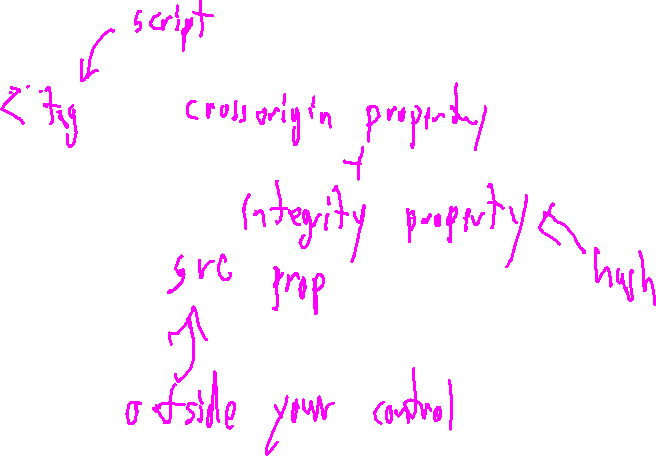 script
< tag crossorigin property
+
integrity property
hash
src prop
outside your control